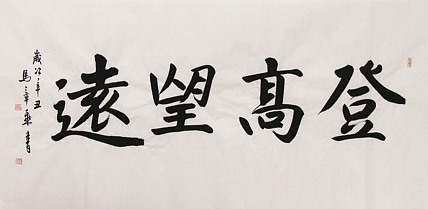 登高望遠
歲次辛丑
馬年乘書